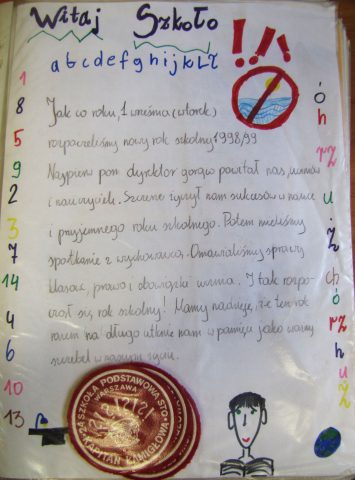 Witaj Szkoło !!!
a b c d e f g h i j k l ł
1
8
5
9
2
3
7
14
4
6
10
13
Jak co roku, 1 września (wtorek)
rozpoczeliśmy nowy rok szkolny 1998/99
Najpierw pan dyrektor gorąco powitał nas, uczniów
i nauczycieli. Szczerze życzył nam sukcesów w nauce
i przyjemnego roku szkolnego. Potem mieliśmy
spotkanie z wychowawcą. Omawialiśmy sprawy
klasowe, prawa i obowiązki ucznia. I tak rozpo-
czął się rok szkolny! Mamy nadzieję, że ten rok
razem na długo utknie nam w pamięci jako ważny
szczebel w naszym życiu.
ó
h
rz
u
ż
ch
ó
rz
h
u
ż
SZKOŁA PODSTAWOWA
WARSZAWA